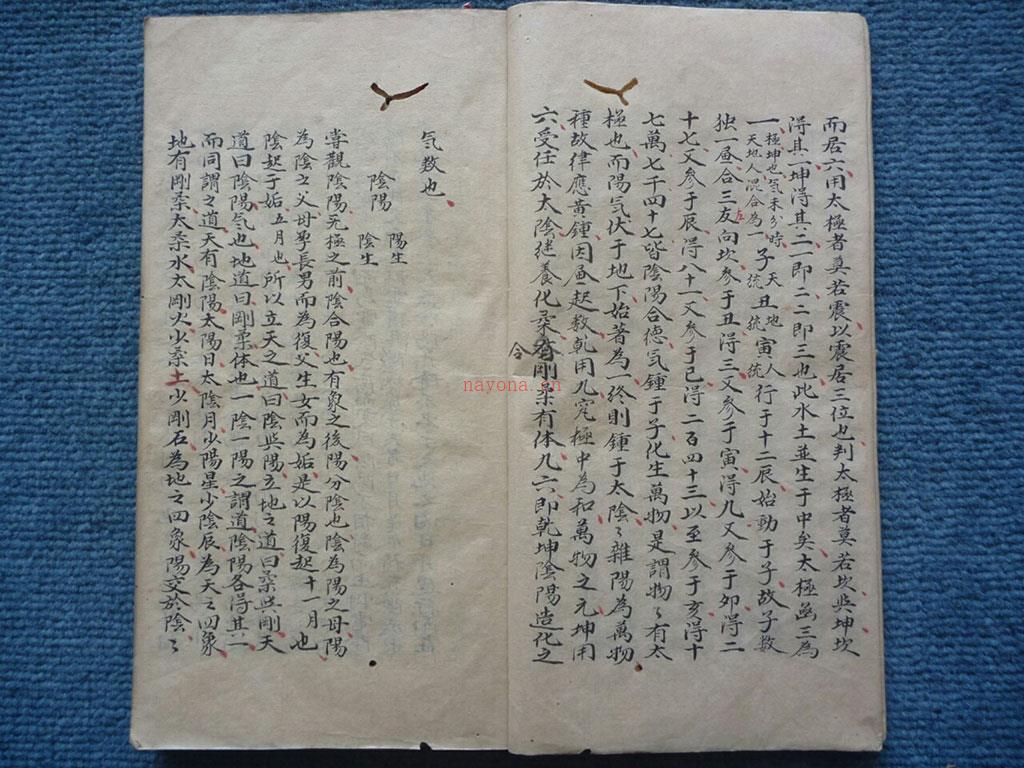 而居六用太極者莫若震以震居三位也判太極者莫若坎與坤坎
得其一坤得其二一即二二即三也此水土並生于中矣太極函三為
一極坤也气未分時天地人混合為一子天統丑地統寅人統行于十二辰始動于子故子数
独一昼合三友向坎參于丑得三又參于寅得九又參于卯得二
左
十七又參于辰得八十一又參于巳得二百四十三以至參于亥得十
七萬七千四十七皆陰陽合德気鍾于子化生萬物是謂物〻有太
極也而陽気伏于地下始著為一終則鍾于太陰〻雜陽為萬物
種故律應黃鍾因昼起数乾用九究極中為和萬物之元坤用
六受任於太陰継養化柔有剛柔有体九六即乾坤陰陽造化之
令
気数也
陰陽
陽生
陰生
嘗觀陰陽无極之前陰合陽也有象之後陽分陰也陰為陽之母陽
為陰之父母孕長男而為復父生女而為姤是以陽復起十一月也
陰起于姤五月也所以立天之道曰陰與陽立地之道曰柔與剛天
道曰陰陽気也地道曰剛柔体也一陰一陽之謂道陰陽各得其一
而同謂之道天有陰陽太陽日太陰月少陽星少陰辰為天之四象
地有剛柔太柔水太剛火少柔土少剛石為地之四象陽交於陰〻
nayona.cn